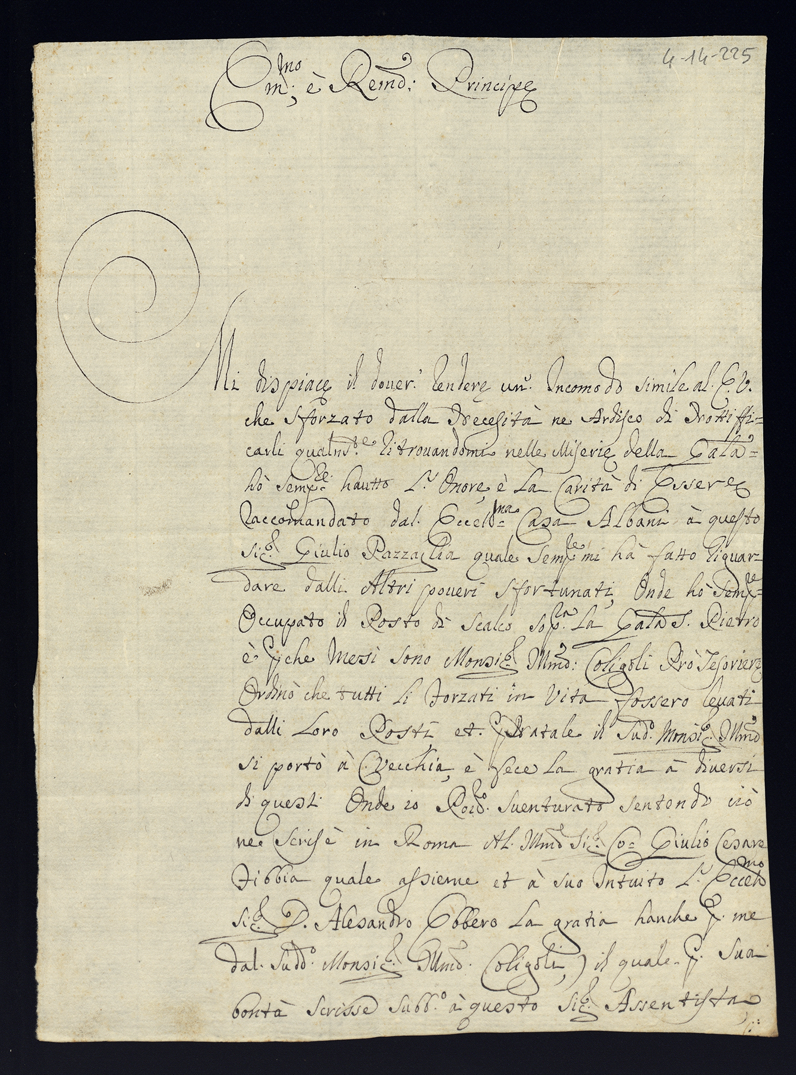 4-14-225
Em:mo è Remd: Principe
Mi dispiace il dover' rendere un' Incomodo simile al. E.V.
che sforzato dalla Necesità ne Ardisco di Nottiffi=
carli qualm.te ritrovandomi nelle Miserie della Gala=
hò semp.re hautto L' Onore, è La Carità di Essere
Raccomandato dal. Eccel.ma Casa Albani à questo
Sig.r Giulio Pazzaglia quale semp.re mi hà fatto riguar=
dare dalli Altri poveri sfortunati, Onde hò semp.re
Occupato il Posto di Scalco sop.ra La Gala S. Pietro
è p che Messi sono Monsig.r Illmo: Coligoli Prò Tesoriere
Ordinò che tutti Li Forzati in Vita fossero levati
dalli Loro Posti et. p Natale il Sud.o Monsig.r Illmo
si portò à C.Vecchia, è fece La gratia à diversi
di questi Onde io Pov.o Sventurato sentendo ciò
ne Scrisè in Roma Al. Illmo Sig.r Co: Giulio Cesare
Tibbia quale assieme et à suo Intuito L' Eccel.mo
Sig.r D. Alesandro Ebbero La gratia hanche p. me
dal. Sudd.o Monsig.r Illmo Coligoli, il quale p. Sua
bontà Scrisse Subb.o à questo Sig.r Assentista